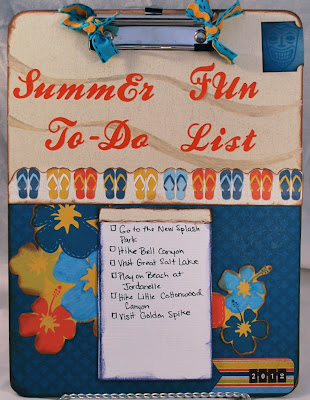 SummEr FUn
To-Do List
Go to the New Splash
Park
Hike Bell Canyon
Visit Great Salt Lake
Play on Beach at
Jordanelle
Hike Little Cottonwood
Canyon
Visit Golden Spike
2012